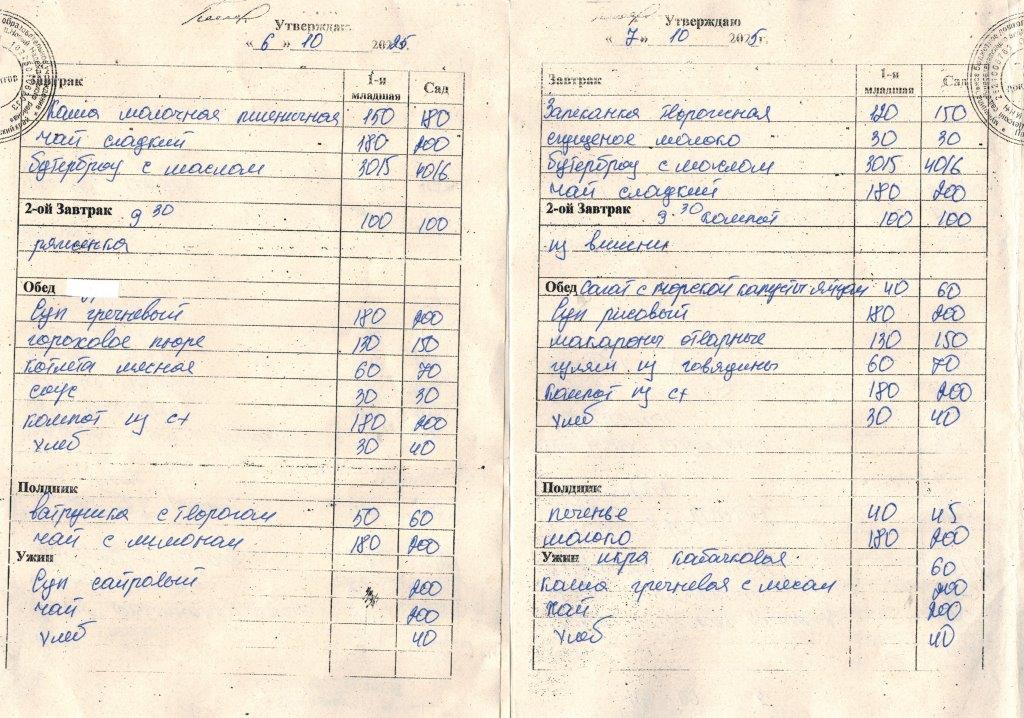 Утверждаю
« 6 » 10 2025
Завтрак 1-я младшая Сад
Каша молочная пшеничная 150 180
чай сладкий 180 200
бутерброд с маслом 30/5 40/6
2-ой Завтрак 9 30 100 100
ряженка
Обед
Суп гречневый 180 200
гороховое пюре 130 150
котлета мясная 60 70
соус 30 30
компот из с/х 180 200
хлеб 30 40
Полдник
ватрушка с творогом 50 60
чай с лимоном 180 200
Ужин
Суп сайровый 200
чай 200
хлеб 40
Утверждаю
« 7 » 10 2025г.
Завтрак 1-я младшая Сад
Запеканка творожная 120 150
сгущеное молоко 30 30
бутерброд с маслом 30/5 40/6
чай сладкий 180 200
2-ой Завтрак 9 30 компот 100 100
из вишни
Обед Салат с морской капусты с яйцом 40 60
Суп рисовый 180 200
макароны отварные 130 150
гуляш из говядины 60 70
Компот из с/х 180 200
хлеб 30 40
Полдник
печенье 40 45
молоко 180 200
Ужин икра кабачковая 60
каша гречневая с мясом 200
чай 200
хлеб 40